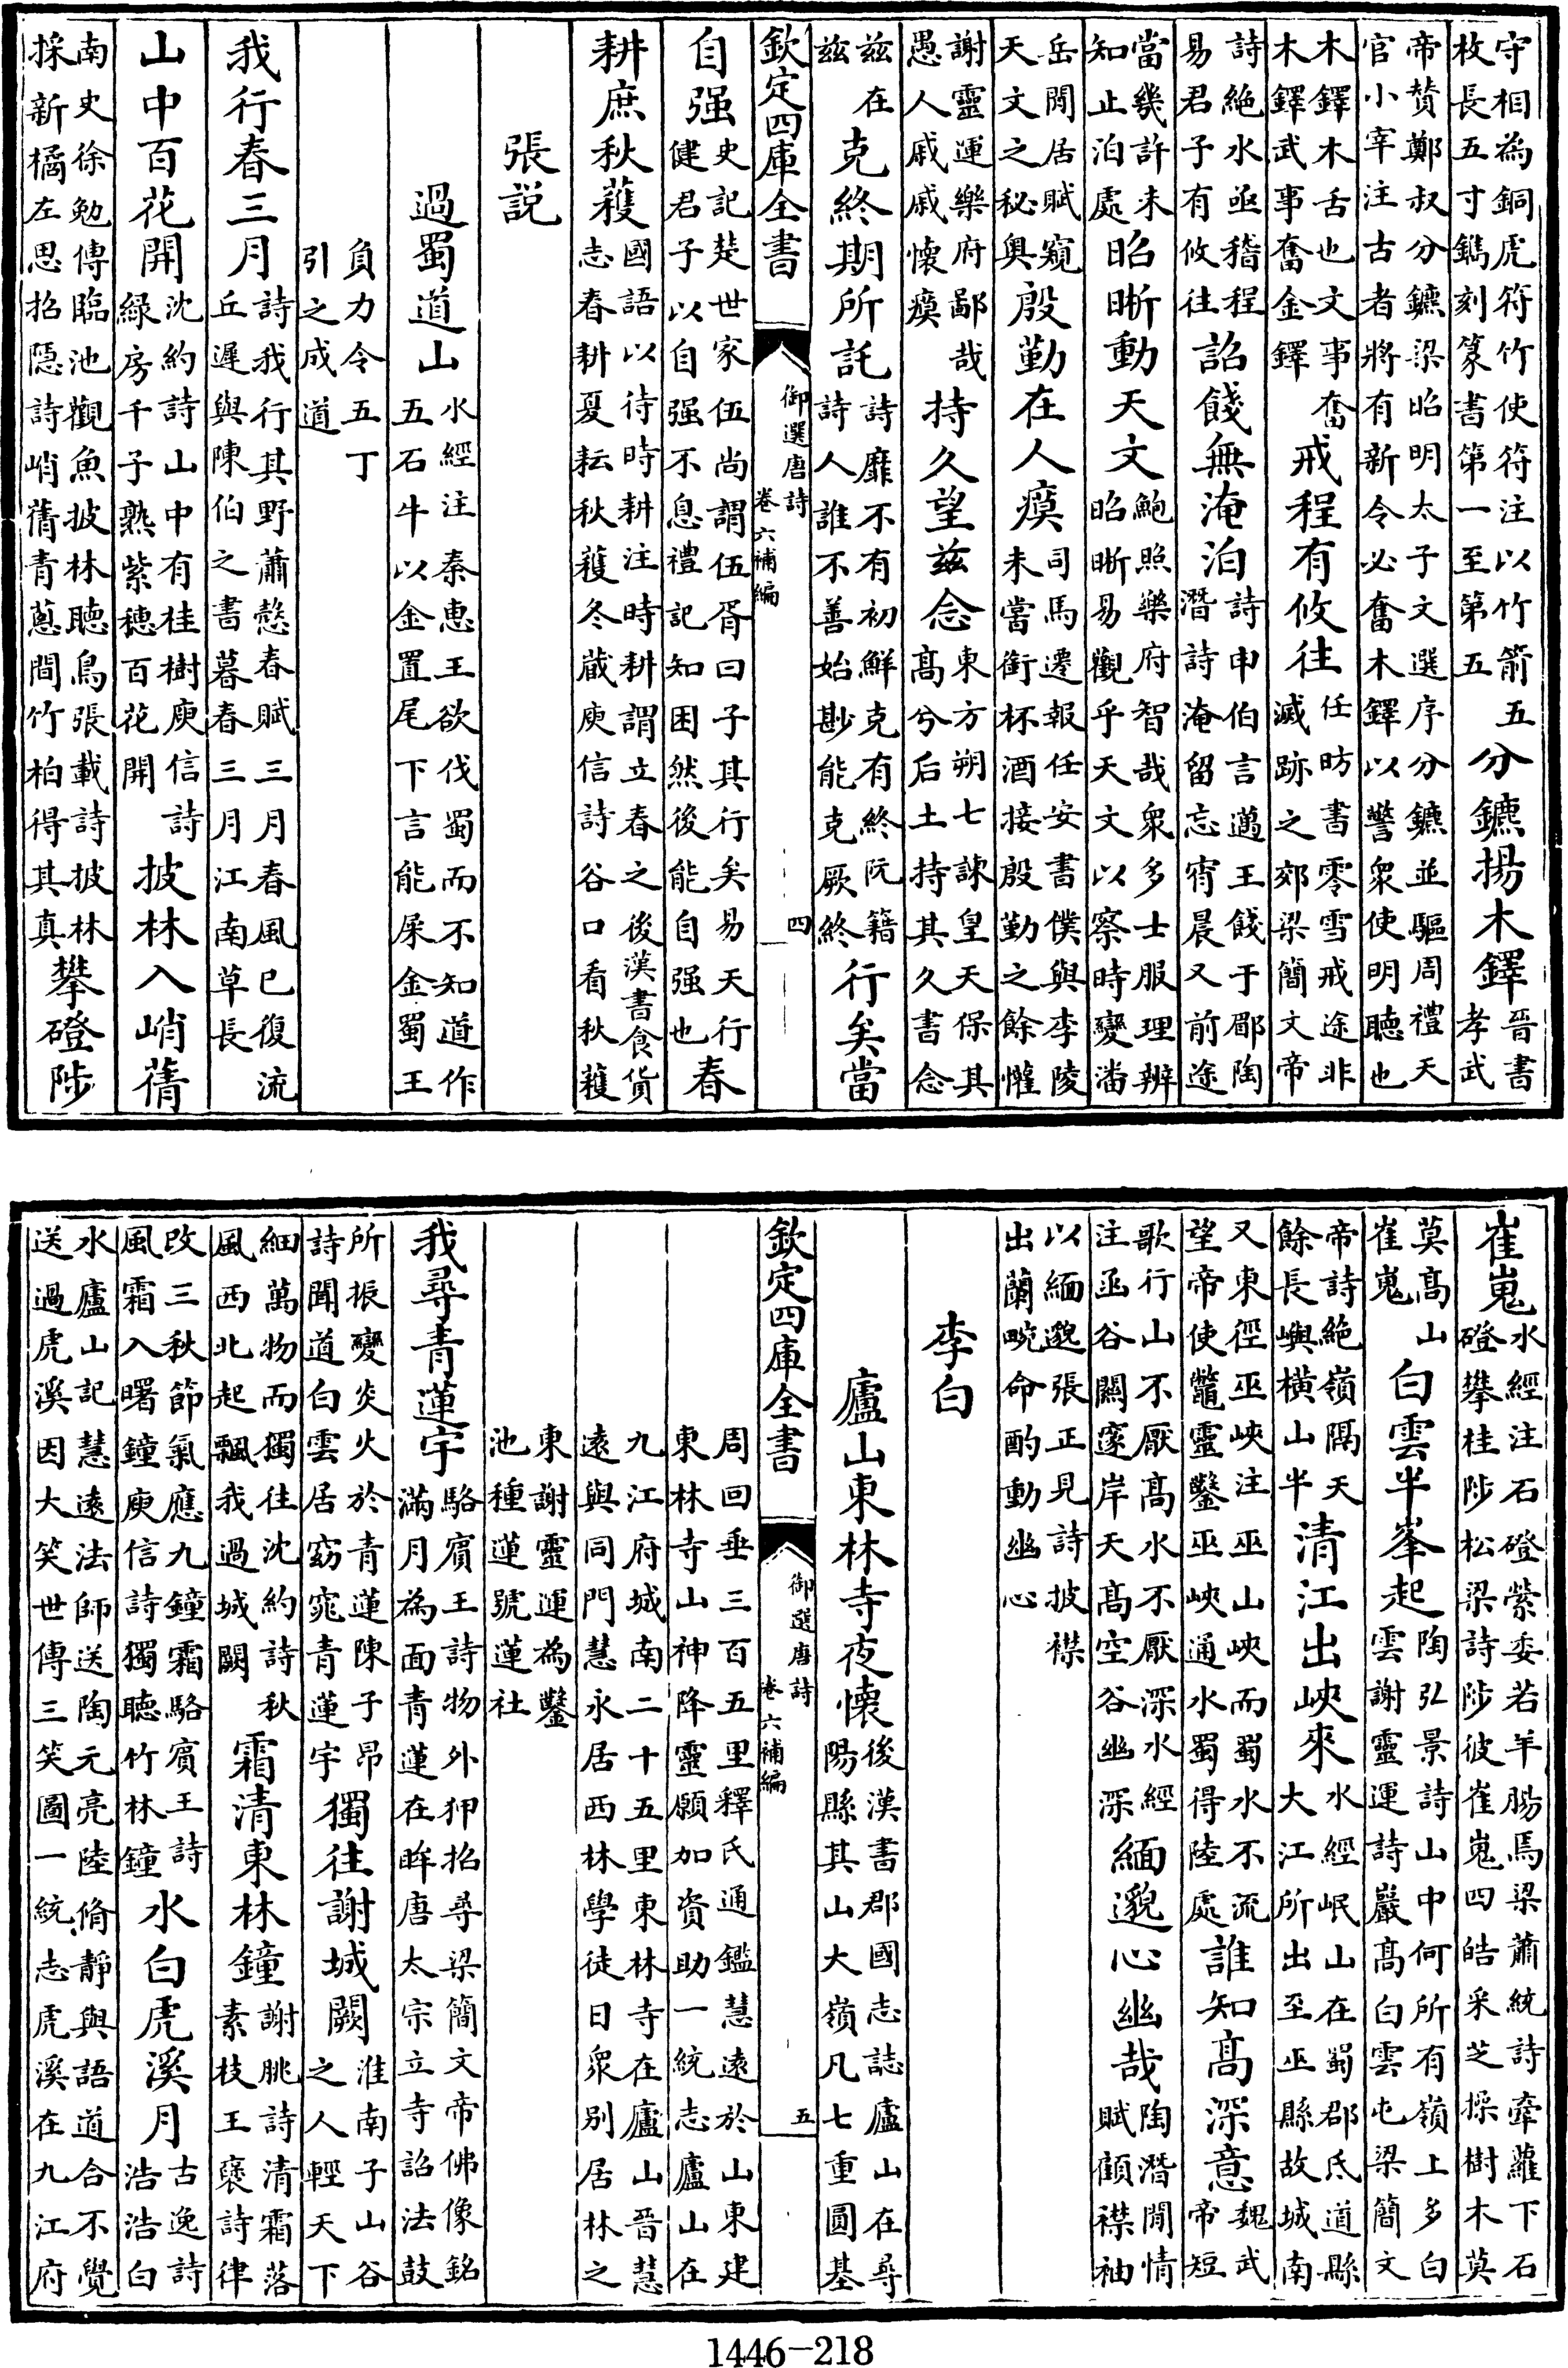 守相為銅虎符竹使符注以竹箭五
枚長五寸鐫刻篆書第一至第五
分鑣揚木鐸
晉書
孝武
帝赞鄭叔分鑣梁昭明太子文選序分鑣並驅周禮天
官小宰注古者將有新令必奮木鐸以警衆使明聽也
木鐸木舌也文事奮
木鐸武事奮金鐸
戒程有攸往
任昉書零雪戒途非
滅跡之郊梁簡文帝
詩絶水亟稽程
易君子有攸往
詔餞無淹泊
詩申伯言邁王餞于郿陶
潛詩淹留忘宵晨又前途
當幾許未
知止泊處
昭晰動天文
鮑照樂府智哉衆多士服理辨
昭晰易觀乎天文以察時變潘
岳閒居賦窺
天文之秘奧
殷勤在人瘼
司馬遷報任安書僕與李陵
未嘗銜杯酒接殷勤之餘懽
謝靈運樂府鄙哉
愚人戚戚懷瘼
持久望兹念
東方朔七諫皇天保其
高兮后土持其久書念
兹在
兹
克終期所託
詩靡不有初鮮克有終阮籍
詩人誰不善始尠能克厥終
行矣當
欽定四庫全書
御選唐詩
卷六補編
四
自强
史記楚世家伍尚謂伍胥曰子其行矣易天行
健君子以自强不息禮記知困然後能自强也
春
耕庶秋穫
國語以待時耕注時耕謂立春之後漢書食貨
志春耕夏耘秋穫冬藏庾信詩谷口看秋穫
張説
過蜀道山
水經注秦惠王欲伐蜀而不知道作
五石牛以金置尾下言能屎金蜀王
負力令五丁
引之成道
我行春三月
詩我行其野蕭慤春賦三月春風已復流
丘遲與陳伯之書暮春三月江南草長
山中百花開
沈約詩山中有桂樹庾信詩
緑房千子熟紫穗百花開
披林入峭蒨
南史徐勉傳臨池觀魚披林聽鳥張載詩披林
採新橘左思招隱詩峭蒨青蔥間竹柏得其真
攀磴陟
崔嵬
水經注石磴縈委若羊腸馬梁蕭統詩牽蘿下石
磴攀桂陟松梁詩陟彼崔嵬四皓采芝操樹木莫
莫高山
崔嵬
白雲半峯起
陶弘景詩山中何所有嶺上多白
雲謝靈運詩巖高白雲屯梁簡文
帝詩絶嶺隅天
餘長嶼横山半
清江出峽來
水經岷山在蜀郡氐道縣
大江所出至巫縣故城南
又東徑巫峽注巫山峽而蜀水不流
望帝使鼈靈鑿巫峽通水蜀得陸處
誰知高深意
魏武
帝短
歌行山不厭高水不厭深水經
注函谷關邃岸天高空谷幽深
緬邈心幽哉
陶潛閒情
賦頋襟袖
以緬邈張正見詩披襟
出蘭畹命酌動幽心
李白
廬山東林寺夜懷
後漢書郡國志誌廬山在尋
陽縣其山大嶺凡七重圓基
欽定四庫全書
御選唐詩
卷六補編
五
周回垂三百五里釋氏通鑑慧遠於山東建
東林寺山神降靈願加資助一統志廬山在
九江府城南二十五里東林寺在廬山晉慧
遠與同門慧永居西林學徒日衆别居林之
東謝靈運為鑿
池種蓮號蓮社
我尋青蓮宇
駱賓王詩物外狎招尋梁簡文帝佛像銘
滿月為面青蓮在眸唐太宗立寺詔法鼓
所振變炎火於青蓮陳子昂
詩聞道白雲居窈窕青蓮宇
獨往謝城闕
淮南子山谷
之人輕天下
細萬物而獨往沈約詩秋
風西北起飄我過城闕
霜清東林鐘
謝朓詩清霜落
素枝王褒詩律
改三秋節氣應九鐘霜駱賓王詩
風霜入曙鐘庾信詩獨聽竹林鐘
水白虎溪月
古逸詩
浩浩白
水廬山記慧遠法師送陶元亮陸脩靜與語道合不覺
送過虎溪因大笑世傳三笑圖一統志虎溪在九江府
1446-218